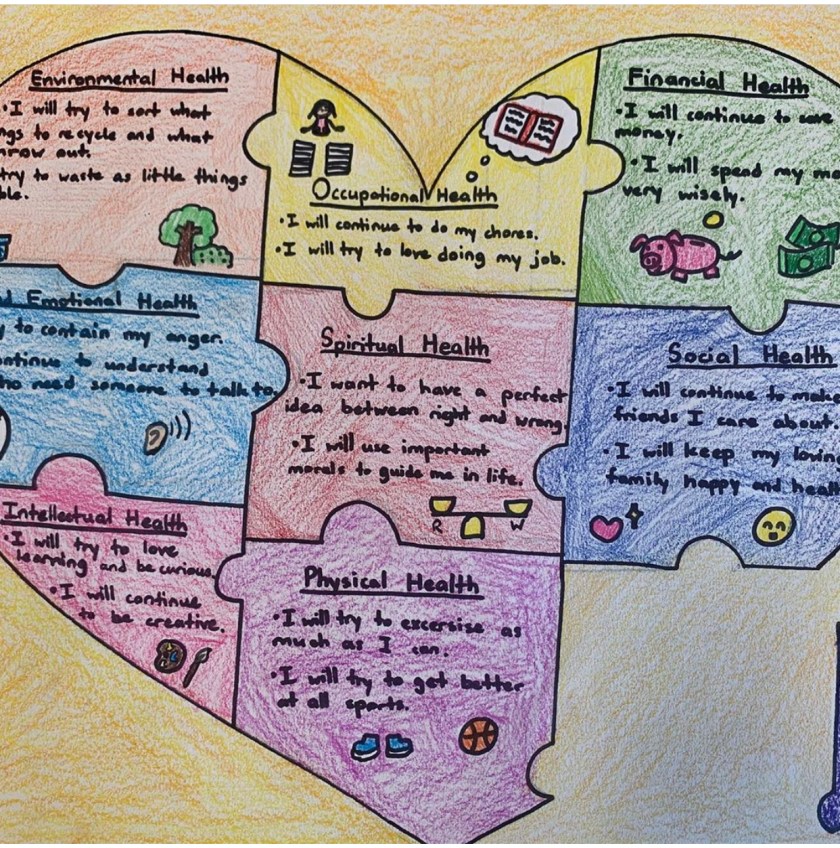 Environmental Health
•I will try to sort what
ngs to recycle and what
hrow out.
try to waste as little things
ble.
Occupational Health
•I will continue to do my chores.
•I will try to love doing my job.
Financial Health
•I will continue to save
money.
•I will spend my mo
very wisely.
d Emotional Health
y to contain my anger.
ontinue to understand
ho need someone to talk to.
Spiritual Health
•I want to have a perfect
idea between right and wrong.
•I will use important
morals to guide me in life.
R W
Social Health
•I will continue to make
friends I care about.
•I will keep my loving
family happy and heal
Intellectual Health
•I will try to love
learning and be curious.
•I will continue
to be creative.
Physical Health
•I will try to excersise as
much as I can.
•I will try to get better
at all sports.